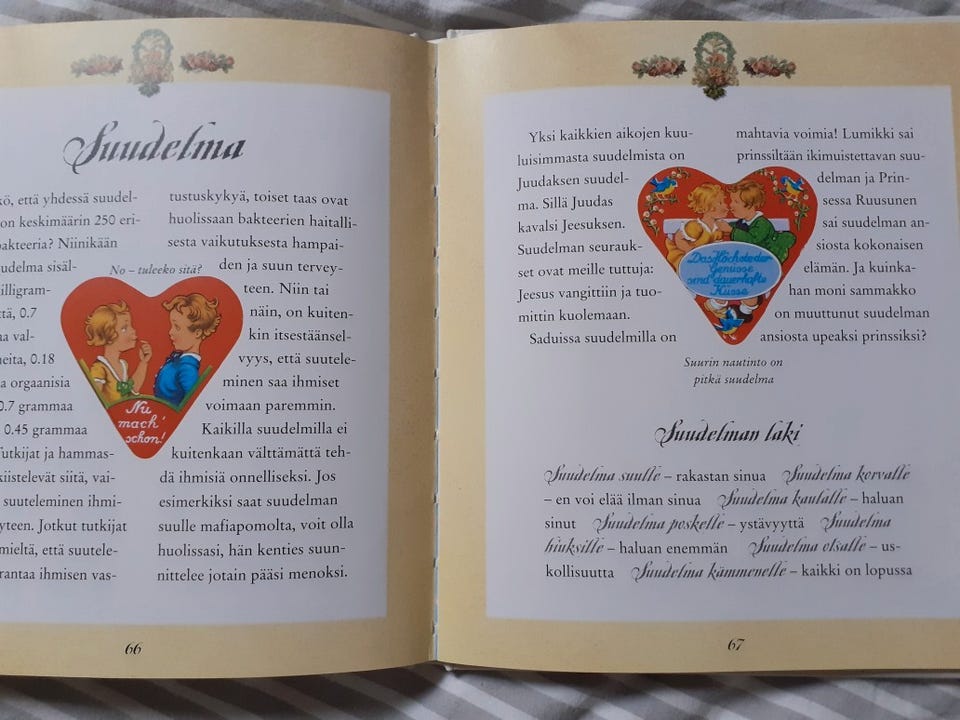 Suudelma
kö, että yhdessä suudel-
on keskimäärin 250 eri-
bakteeria? Niinikään
udelma sisäl-
illigram-
ttä, 0.7
aa val-
neita, 0.18
a orgaanisia
0.7 grammaa
0.45 grammaa
Tutkijat ja hammas-
kiistelevät siitä, vai-
suuteleminen ihmi-
yteen. Jotkut tutkijat
mieltä, että suutele-
rantaa ihmisen vas-
No – tuleeko sitä?
Nu
mach'
schon!
tustuskykyä, toiset taas ovat
huolissaan bakteerien haitalli-
sesta vaikutuksesta hampai-
den ja suun tervey-
teen. Niin tai
näin, on kuiten-
kin itsestäänsel-
vyys, että suutele-
minen saa ihmiset
voimaan paremmin.
Kaikilla suudelmilla ei
kuitenkaan välttämättä teh-
dä ihmisiä onnelliseksi. Jos
esimerkiksi saat suudelman
suulle mafiapomolta, voit olla
huolissasi, hän kenties suun-
nittelee jotain pääsi menoksi.
66
Yksi kaikkien aikojen kuu-
luisimmasta suudelmista on
Juudaksen suudel-
ma. Sillä Juudas
kavalsi Jeesuksen.
Suudelman seurauk-
set ovat meille tuttuja:
Jeesus vangittiin ja tuo-
mittiin kuolemaan.
Saduissa suudelmilla on
mahtavia voimia! Lumikki sai
prinssiltään ikimuistettavan suu-
delman ja Prin-
sessa Ruusunen
sai suudelman an-
siosta kokonaisen
elämän. Ja kuinka-
han moni sammakko
on muuttunut suudelman
ansiosta upeaksi prinssiksi?
Das Höchste der
Genüsse
sind dauerhafte
Küsse
Suurin nautinto on
pitkä suudelma
Suudelman laki
Suudelma suulle – rakastan sinua Suudelma korvalle
– en voi elää ilman sinua Suudelma kaulalle – haluan
sinut Suudelma poskelle – ystävyyttä Suudelma
hiuksille – haluan enemmän Suudelma otsalle – us-
kollisuutta Suudelma kämmenelle – kaikki on lopussa
67